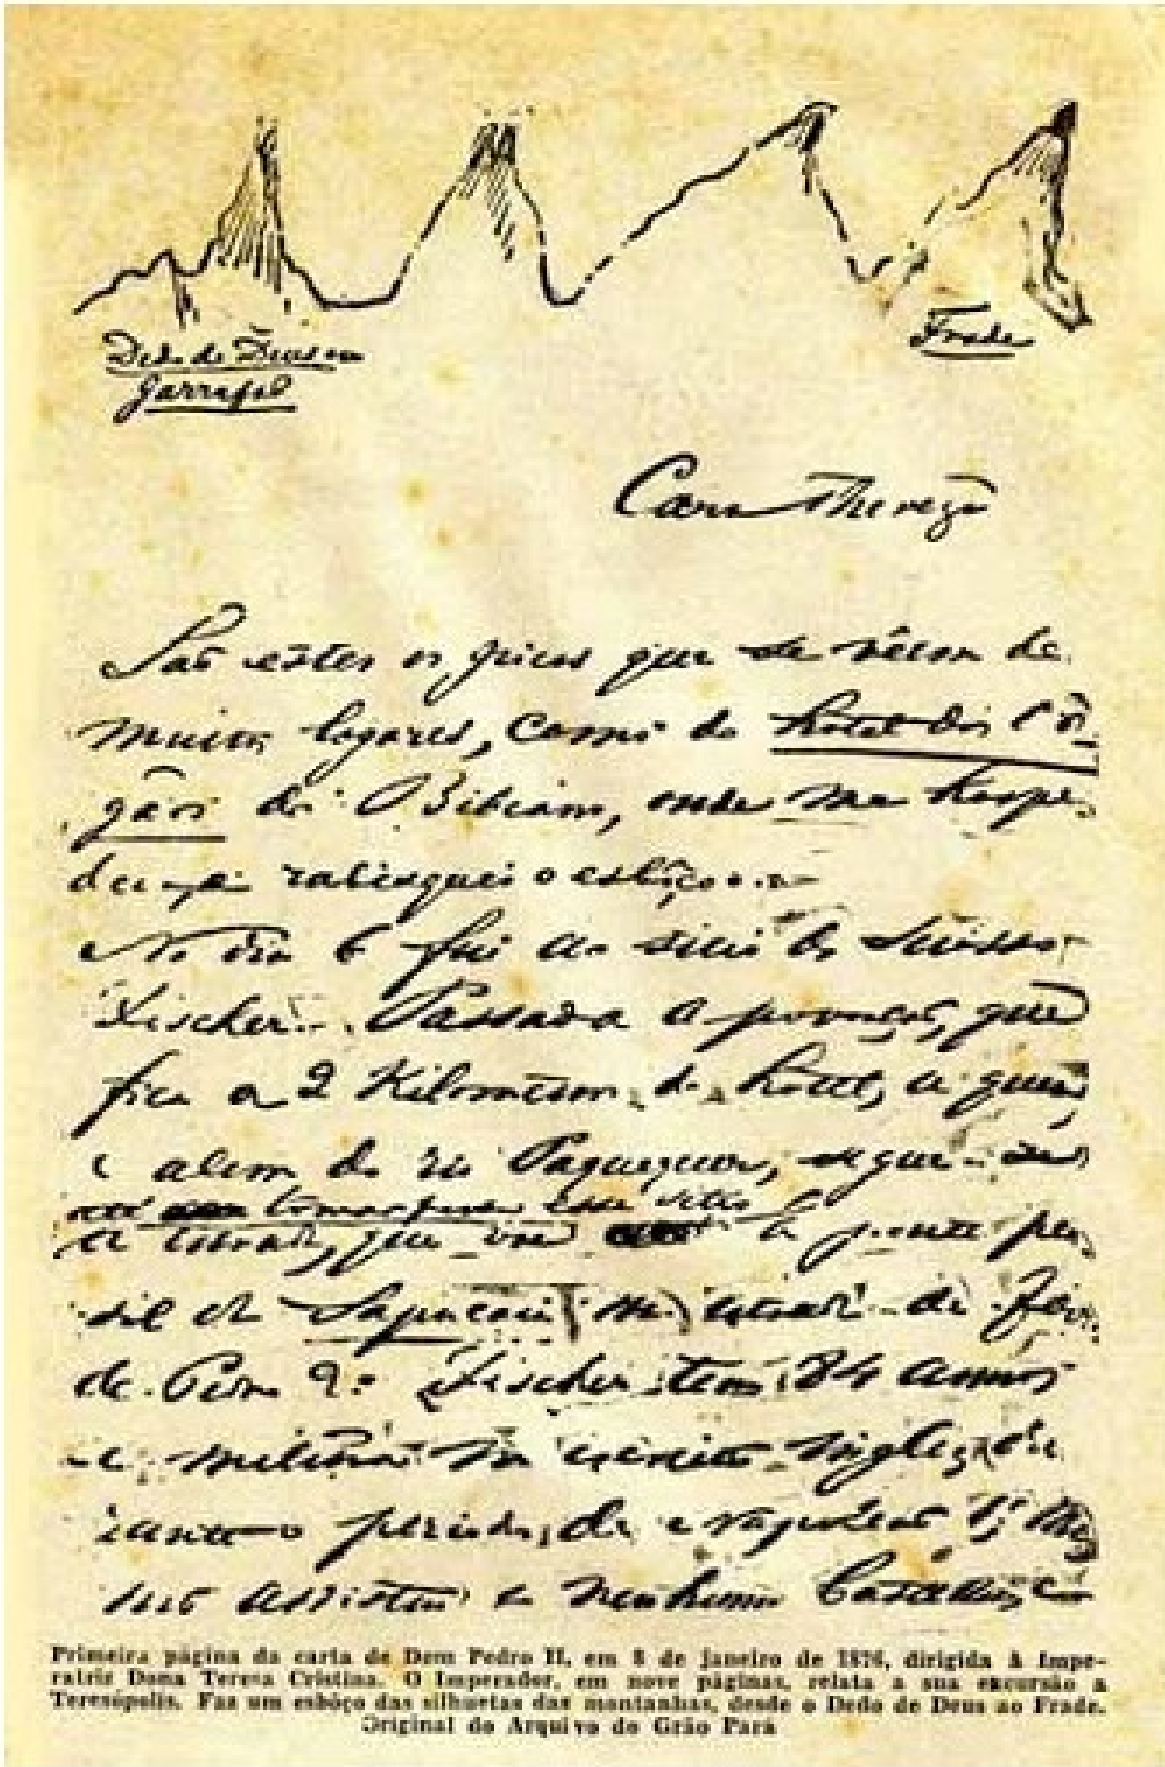 Dedo de Deus ou
Garrafão
Frade
Cara Thereza
São estes os picos que se vêem de
muitos logares, como do hotel dos Or-
gãos do Bibiano, onde me hospe-
dei e rabisquei o esboço
No dia 6 fui ao sitio do Suisso
Fischer. Passada a povoação, que
fica a 2 Kilometros do hotel, a qual
é alem do rio Paquequer, segui
a estrada, que vae á ponte pen-
sil de Sapucaia na estrada de fer-
ro de Pedro 2º. Fischer tem 84 annos
e militou no exercito inglez du-
rante o periodo de Napoleão 1º,
não assistiu a nenhuma batalha
Primeira página da carta de Dom Pedro II, em 8 de janeiro de 1876, dirigida à Impe-
ratriz Dona Teresa Cristina. O Imperador, em nove páginas, relata a sua excursão a
Teresópolis. Faz um esbôço das silhuetas das montanhas, desde o Dedo de Deus ao Frade.
Original do Arquivo do Grão Pará